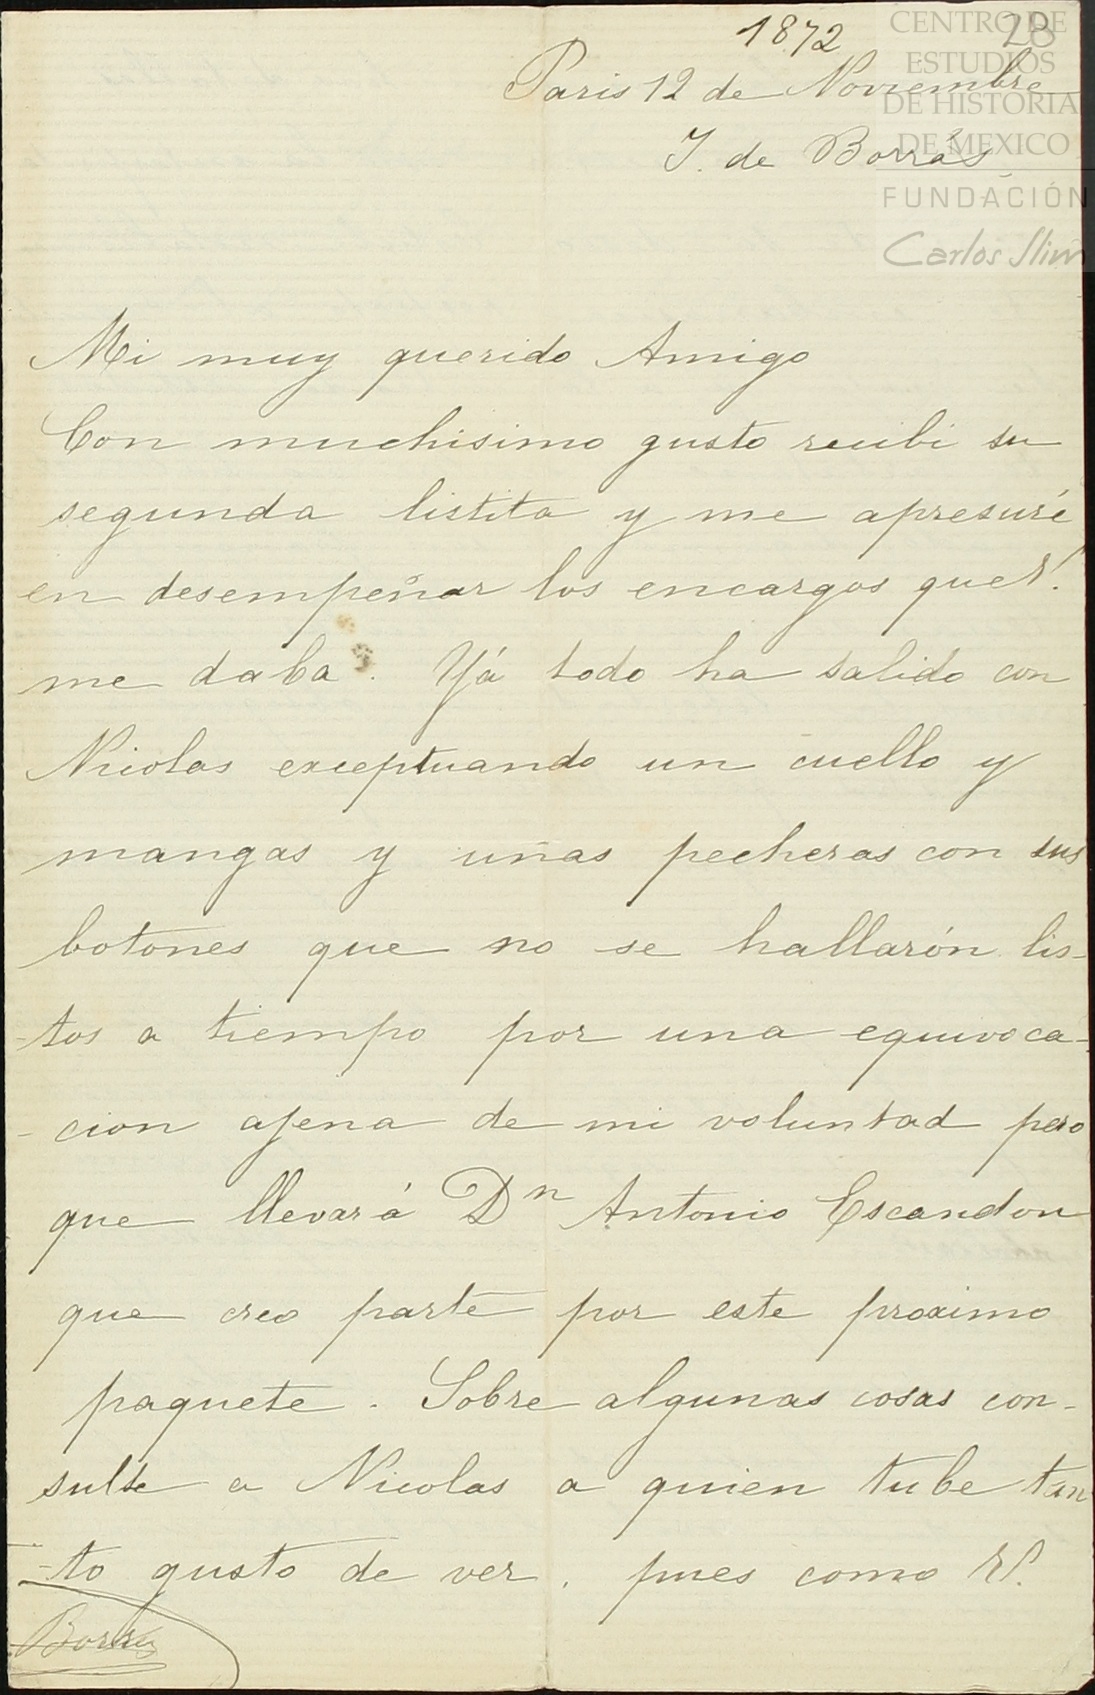 1872
28
Paris 12 de Noviembre
J. de Borrás
CENTRO DE
ESTUDIOS
DE HISTORIA
DE MEXICO
FUNDACIÓN
Carlos Slim
Mi muy querido Amigo
Con muchisimo gusto recibi su
segunda listita y me apresuré
en desempeñar los encargos que V.
me daba. Yá todo ha salido con
Nicolas exceptuando un cuello y
mangas y unas pecheras con sus
botones que no se hallarón lis-
-tos a tiempo por una equivoca-
-cion agena de mi voluntad pero
que llevará Dn Antonio Escandon
que creo parte por este proximo
paquete. Sobre algunas cosas con-
sulte a Nicolas a quien tube tan
-to gusto de ver. pues como V.
Borrás